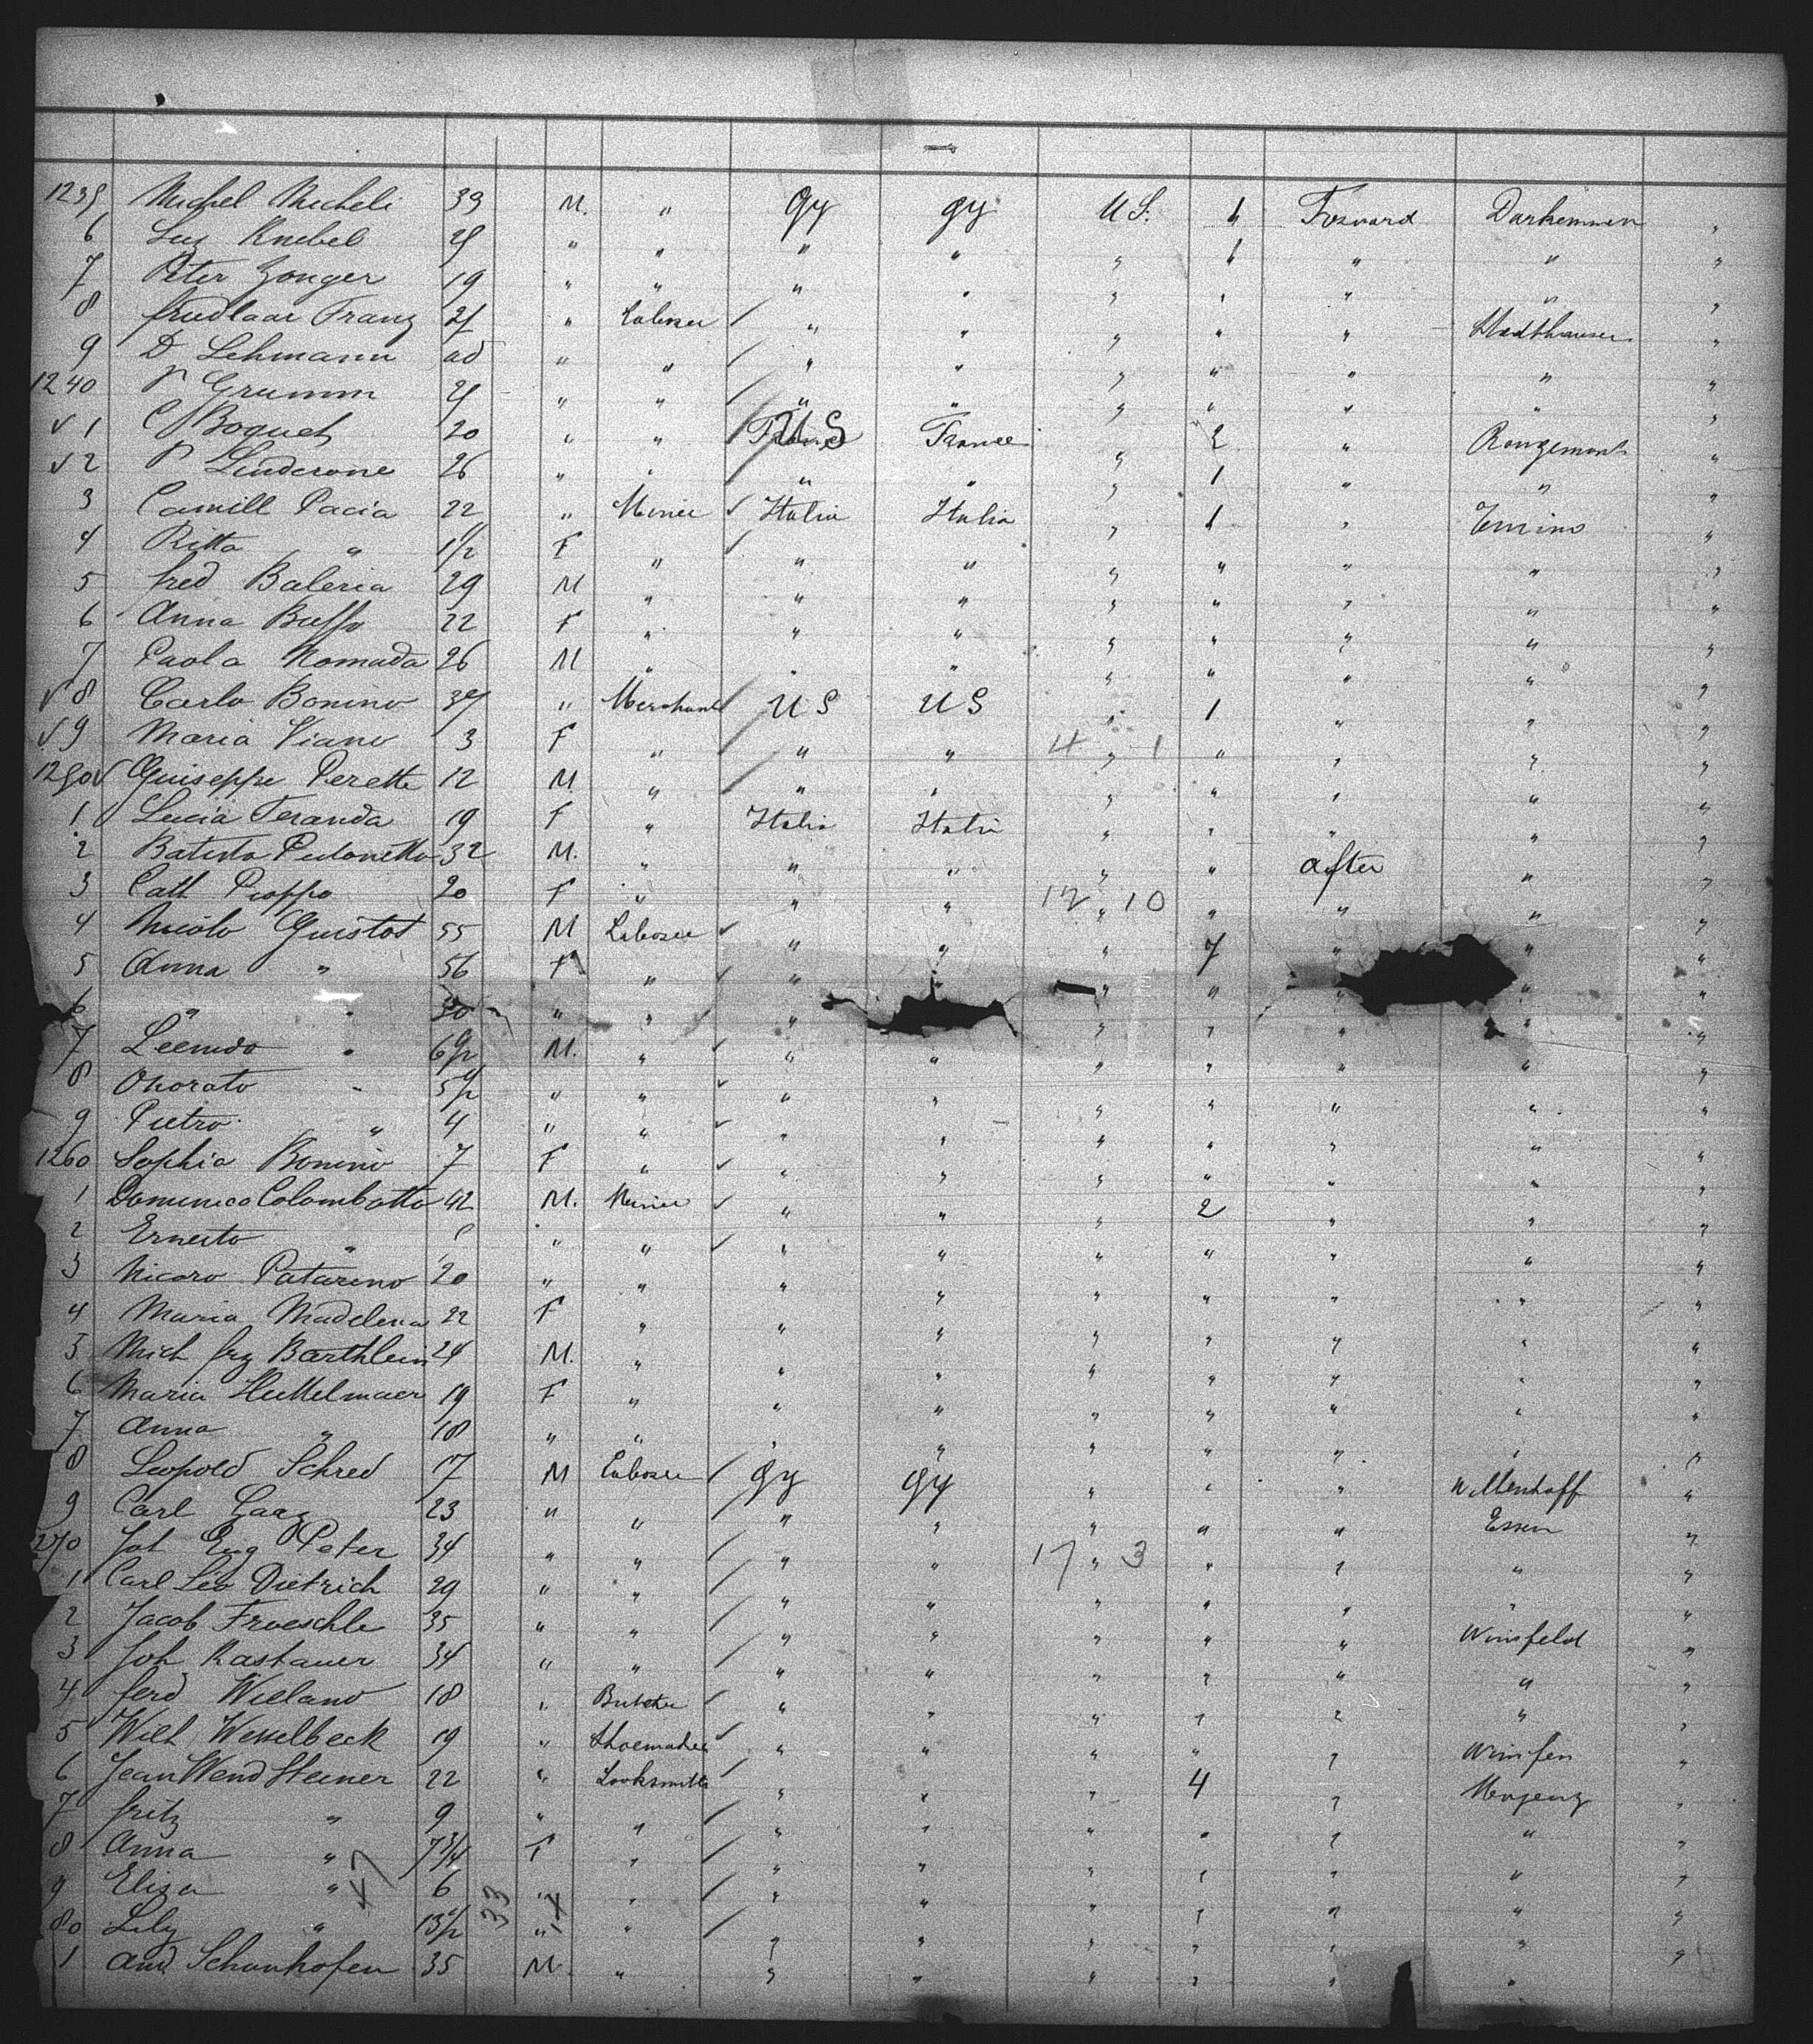 1235 Michel Micheli 33 M. " Gy Gy U S. 1 Forward Darkemmen "
6 Luz Knebel 25 " " " " " 1 " " "
7 Peter Zonger 19 " " " " " " " " "
8 Franz 25 " Laborer " " " " " Stadthausen "
9 D Lehmann ad " " " " " " " " "
1240 P Grumm 25 " " " " " " " " "
1 C Boquet 20 " " France U S France " 2 " Rougemont "
2 P Linderone 26 " " " " " 1 " " "
3 Camill Pacia 22 " Miner Italia Italia " 1 " "
4 Ritta " 1 1/2 F " " " " " " " "
5 fred Baleria 29 M " " " " " " " "
6 Anna Buffo 22 F " " " " " " " "
7 Paola Nomada 26 M " " " " " " " "
8 Carlo Bonino 37 " Merchant U S U S " 1 " " "
9 Maria Viano 3 F " " " 4 " 1 " " " "
1250 Guiseppe Perette 12 M. " " " " " " " "
1 Lucia Feranda 19 F " Italia Itali " " " " "
2 Batista 32 M. " " " " " After " "
3 Cath Pioppo 20 F " " " 12 " 10 " " " "
4 Nicolo Guistot 55 M Laborer " " " 7 " " "
5 Anna " 56 F " " " " " " "
6 " " 30 " " " " " " " "
7 " 6 M. " " " " " " " "
8 Onorato " 5 " " " " " " " " "
9 Pietro " 4 " " " " " " " " "
1260 Sophia Bonino 7 F " " " " " " " "
1 Domenico Colombatto 42 M. Miner " " " 2 " " "
2 Ernesto " " " " " " " " " "
3 Nicoro Patarino 20 " " " " " " " " "
4 Maria Madelena 22 F " " " " " " " "
5 Mich frz Barthlein 24 M. " " " " " " " "
6 Maria Huttelmaer 19 F " " " " " " " "
7 Anna " 18 " " " " " " " " "
8 Leopold Schred 17 M Laborer Gy Gy " " " Wittenhoff "
9 Carl Gaag 23 " " " " " " " Essen "
1270 Joh Eug Peter 34 " " " " 17 " 3 " " " "
1 Carl Leo Dietrich 29 " " " " " " " " "
2 Jacob Froeschle 35 " " " " " " " Winsfeld "
3 Joh Rashauer 34 " " " " " " " " "
4 ferd Wieland 18 " Butcher " " " " " " "
5 Wilh Wesselbeck 19 " Shoemaker " " " " " Wimfen "
6 Jean Wend Steiner 22 " Locksmith " " " 4 " "
7 fritz " 9 " " " " " " " " "
8 Anna " 7 3/4 F " " " " " " " "
9 Elisa " 6 " " " " " " " " "
80 Lily " " " " " " " " " "
1 And Schonhofen 35 M. " " " " " " " "
47 33